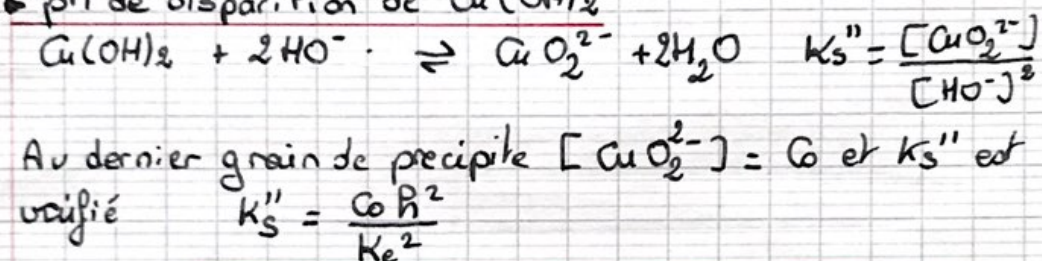 • pH de disparition de Cu(OH)2
Cu(OH)2 + 2HO⁻ ⇌ CuO2²⁻ + 2H2O Ks'' = [CuO2²⁻] / [HO⁻]²
Au dernier grain de precipite [CuO2²⁻] = Co et Ks'' est
vérifié Ks'' = Co h² / Ke²